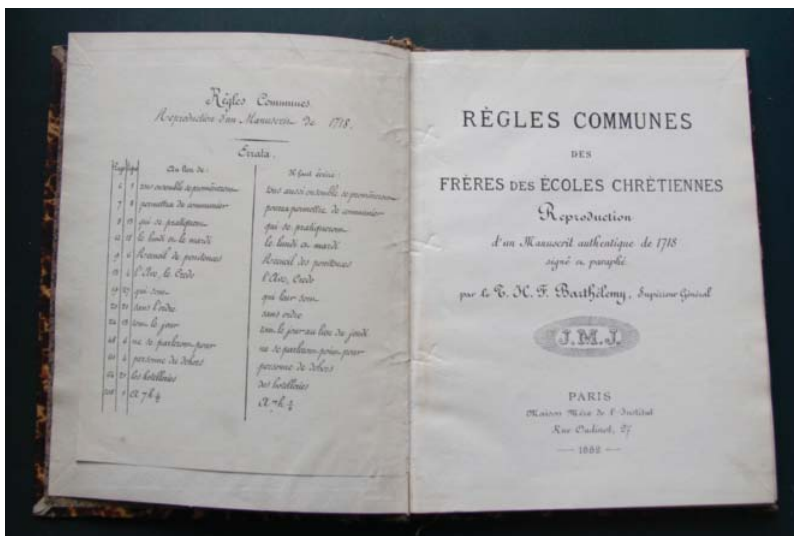 Règles Communes
Reproduction d'un Manuscrit de 1718.
Errata.
Page Ligne Au lieu de: Il faut écrire:
tous ensemble se promèneron tous aussi ensemble se promèneron
7 8 permettra de communier pourra permettre de communier
8 13 qui se pratiquen qui se pratiqueron
12 18 le lundi ou le mardi le lundi ou mardi
Recueil de penitences Recueil des penitences
l'Ave, le Credo l'Ave, Credo
qui son qui leur son
sans l'ordre sans ordre
tou le jour tou le jour au lieu du jeudi
48 6 ne se parleron pour ne se parleron poin pour
personne de dehors personne du dehors
les hotelleries des hotelleries
A 7h ¼ A 7h ½
RÈGLES COMMUNES
DES
FRÈRES DES ÉCOLES CHRÉTIENNES
Reproduction
d'un Manuscrit authentique de 1718
signé et paraphé
par le T. H. F. Barthélemy, Supérieur Général
J.M.J.
PARIS
Maison Mère de l'Institut
Rue Oudinot, 27
— 1882 —